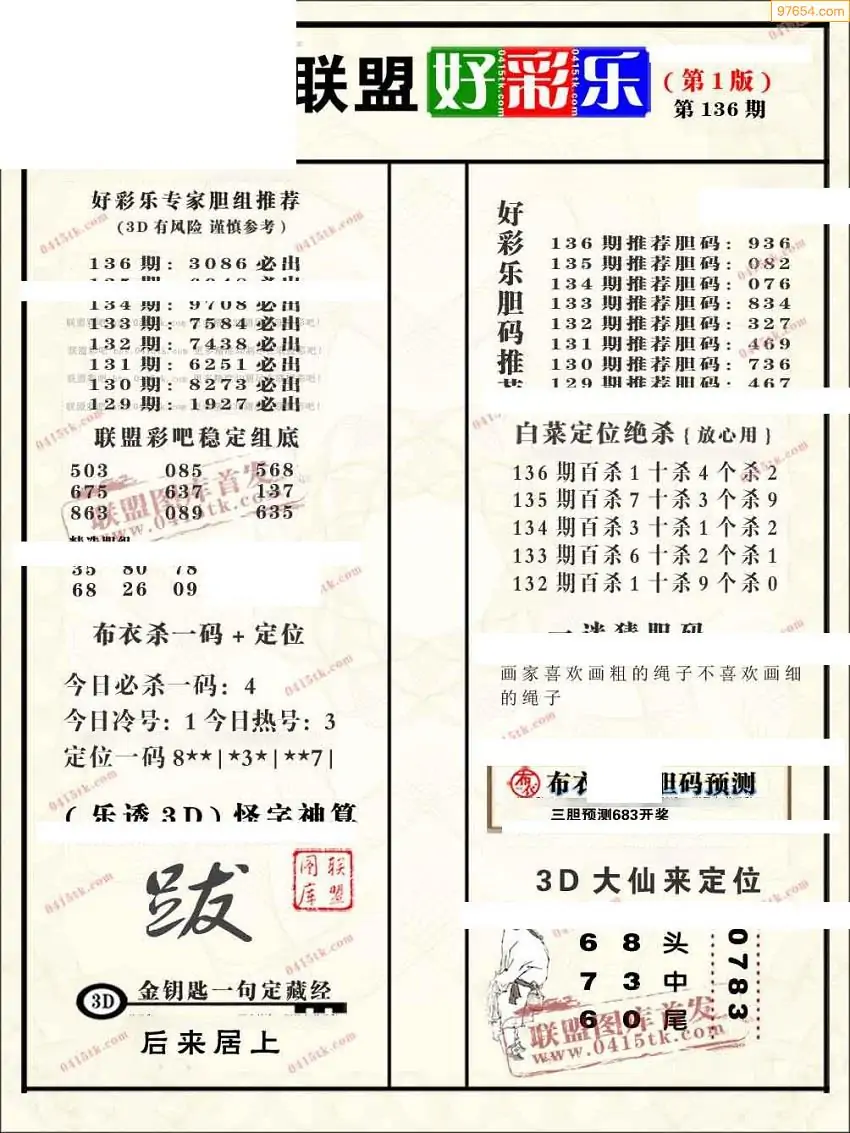 97654.com
联盟好彩乐
(第1版)
第136期
好彩乐专家胆组推荐
(3D有风险 谨慎参考)
136期:3086必出
134期:9708必出
133期:7584必出
132期:7438必出
131期:6251必出
130期:8273必出
129期:1927必出
联盟彩吧稳定组底
503 085 568
675 637 137
863 089 635
35 80 78
68 26 09
布衣杀一码+定位
今日必杀一码:4
今日冷号:1 今日热号:3
定位一码8**|*3*|**7|
(乐透3D)怪字神算
跋
联盟图库
3D 金钥匙一句定藏经
后来居上
好彩乐胆码推荐
136期推荐胆码:936
135期推荐胆码:082
134期推荐胆码:076
133期推荐胆码:834
132期推荐胆码:327
131期推荐胆码:469
130期推荐胆码:736
129期推荐胆码:467
白菜定位绝杀{放心用}
136期百杀1十杀4个杀2
135期百杀7十杀3个杀9
134期百杀3十杀1个杀2
133期百杀6十杀2个杀1
132期百杀1十杀9个杀0
一谜猜胆码
画家喜欢画粗的绳子不喜欢画细
的绳子
布衣 胆码预测
三胆预测683开奖
3D大仙来定位
6 8 头
7 3 中
6 0 尾
0783
联盟图库首发
www.0415tk.com